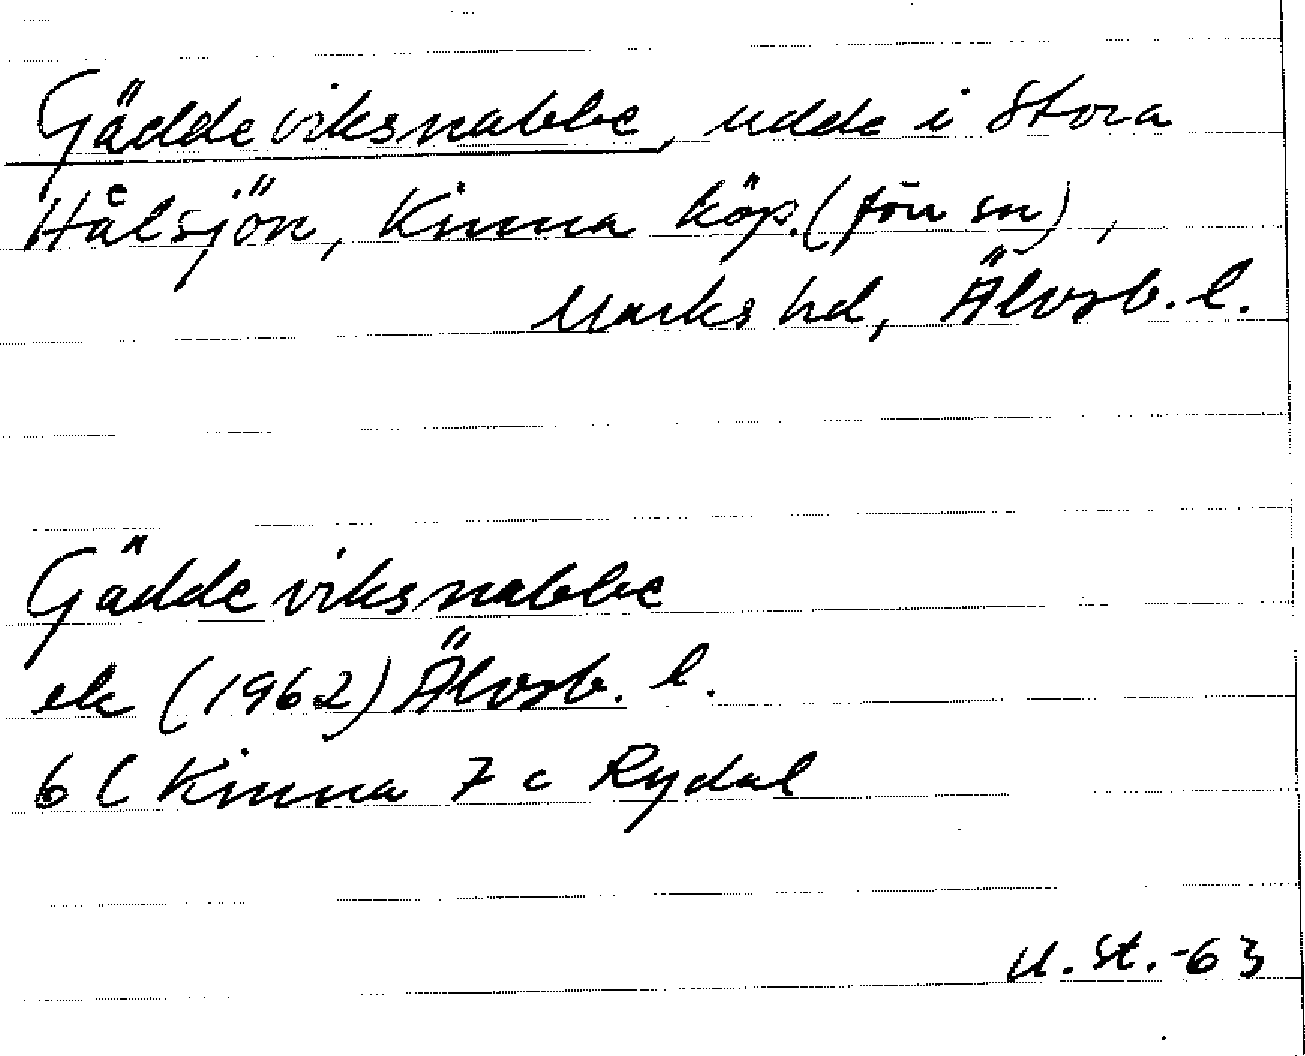 Gäddeviksnabbe, udde i Stora
Hålsjön, Kinna köp. (förr sn),
Marks hd, Älvsb. l.
Gäddeviksnabbe
ek (1962) Älvsb. l.
6 C Kinna 7 c Rydal
U. St. -63